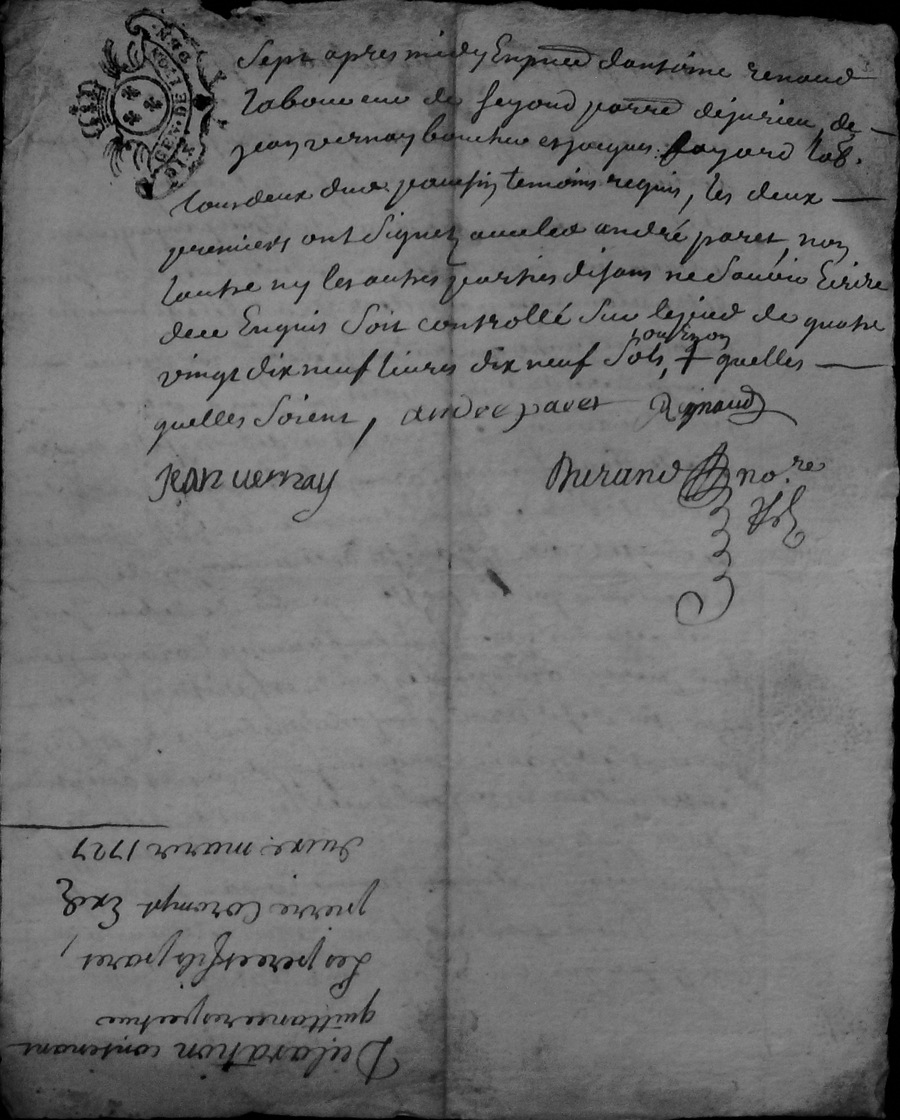 GEN. DE DIX DEN.
Sept apres midy En pnce d'antoine renaud
laboureur de seyond parre dejurieu, de
jean vernay boucher et jacques fayard lab.
tous deux du a. temoins requis, les deux
premiers ont signez avec led andré paret, non
l'autre ny les autres parties disans ne savoir Ecrire
de ce Enquis soit controllé sur le pied de quatre
tournon
vingt dix neuf livres dix neuf sols, + quelles
quelles soient, andre paret Reynaud
JEAN vernay
Durand no.re
Declaration contenant
quittance respective
Les pere et fils paret,
pierre Corompt
du xxe. mars 1727